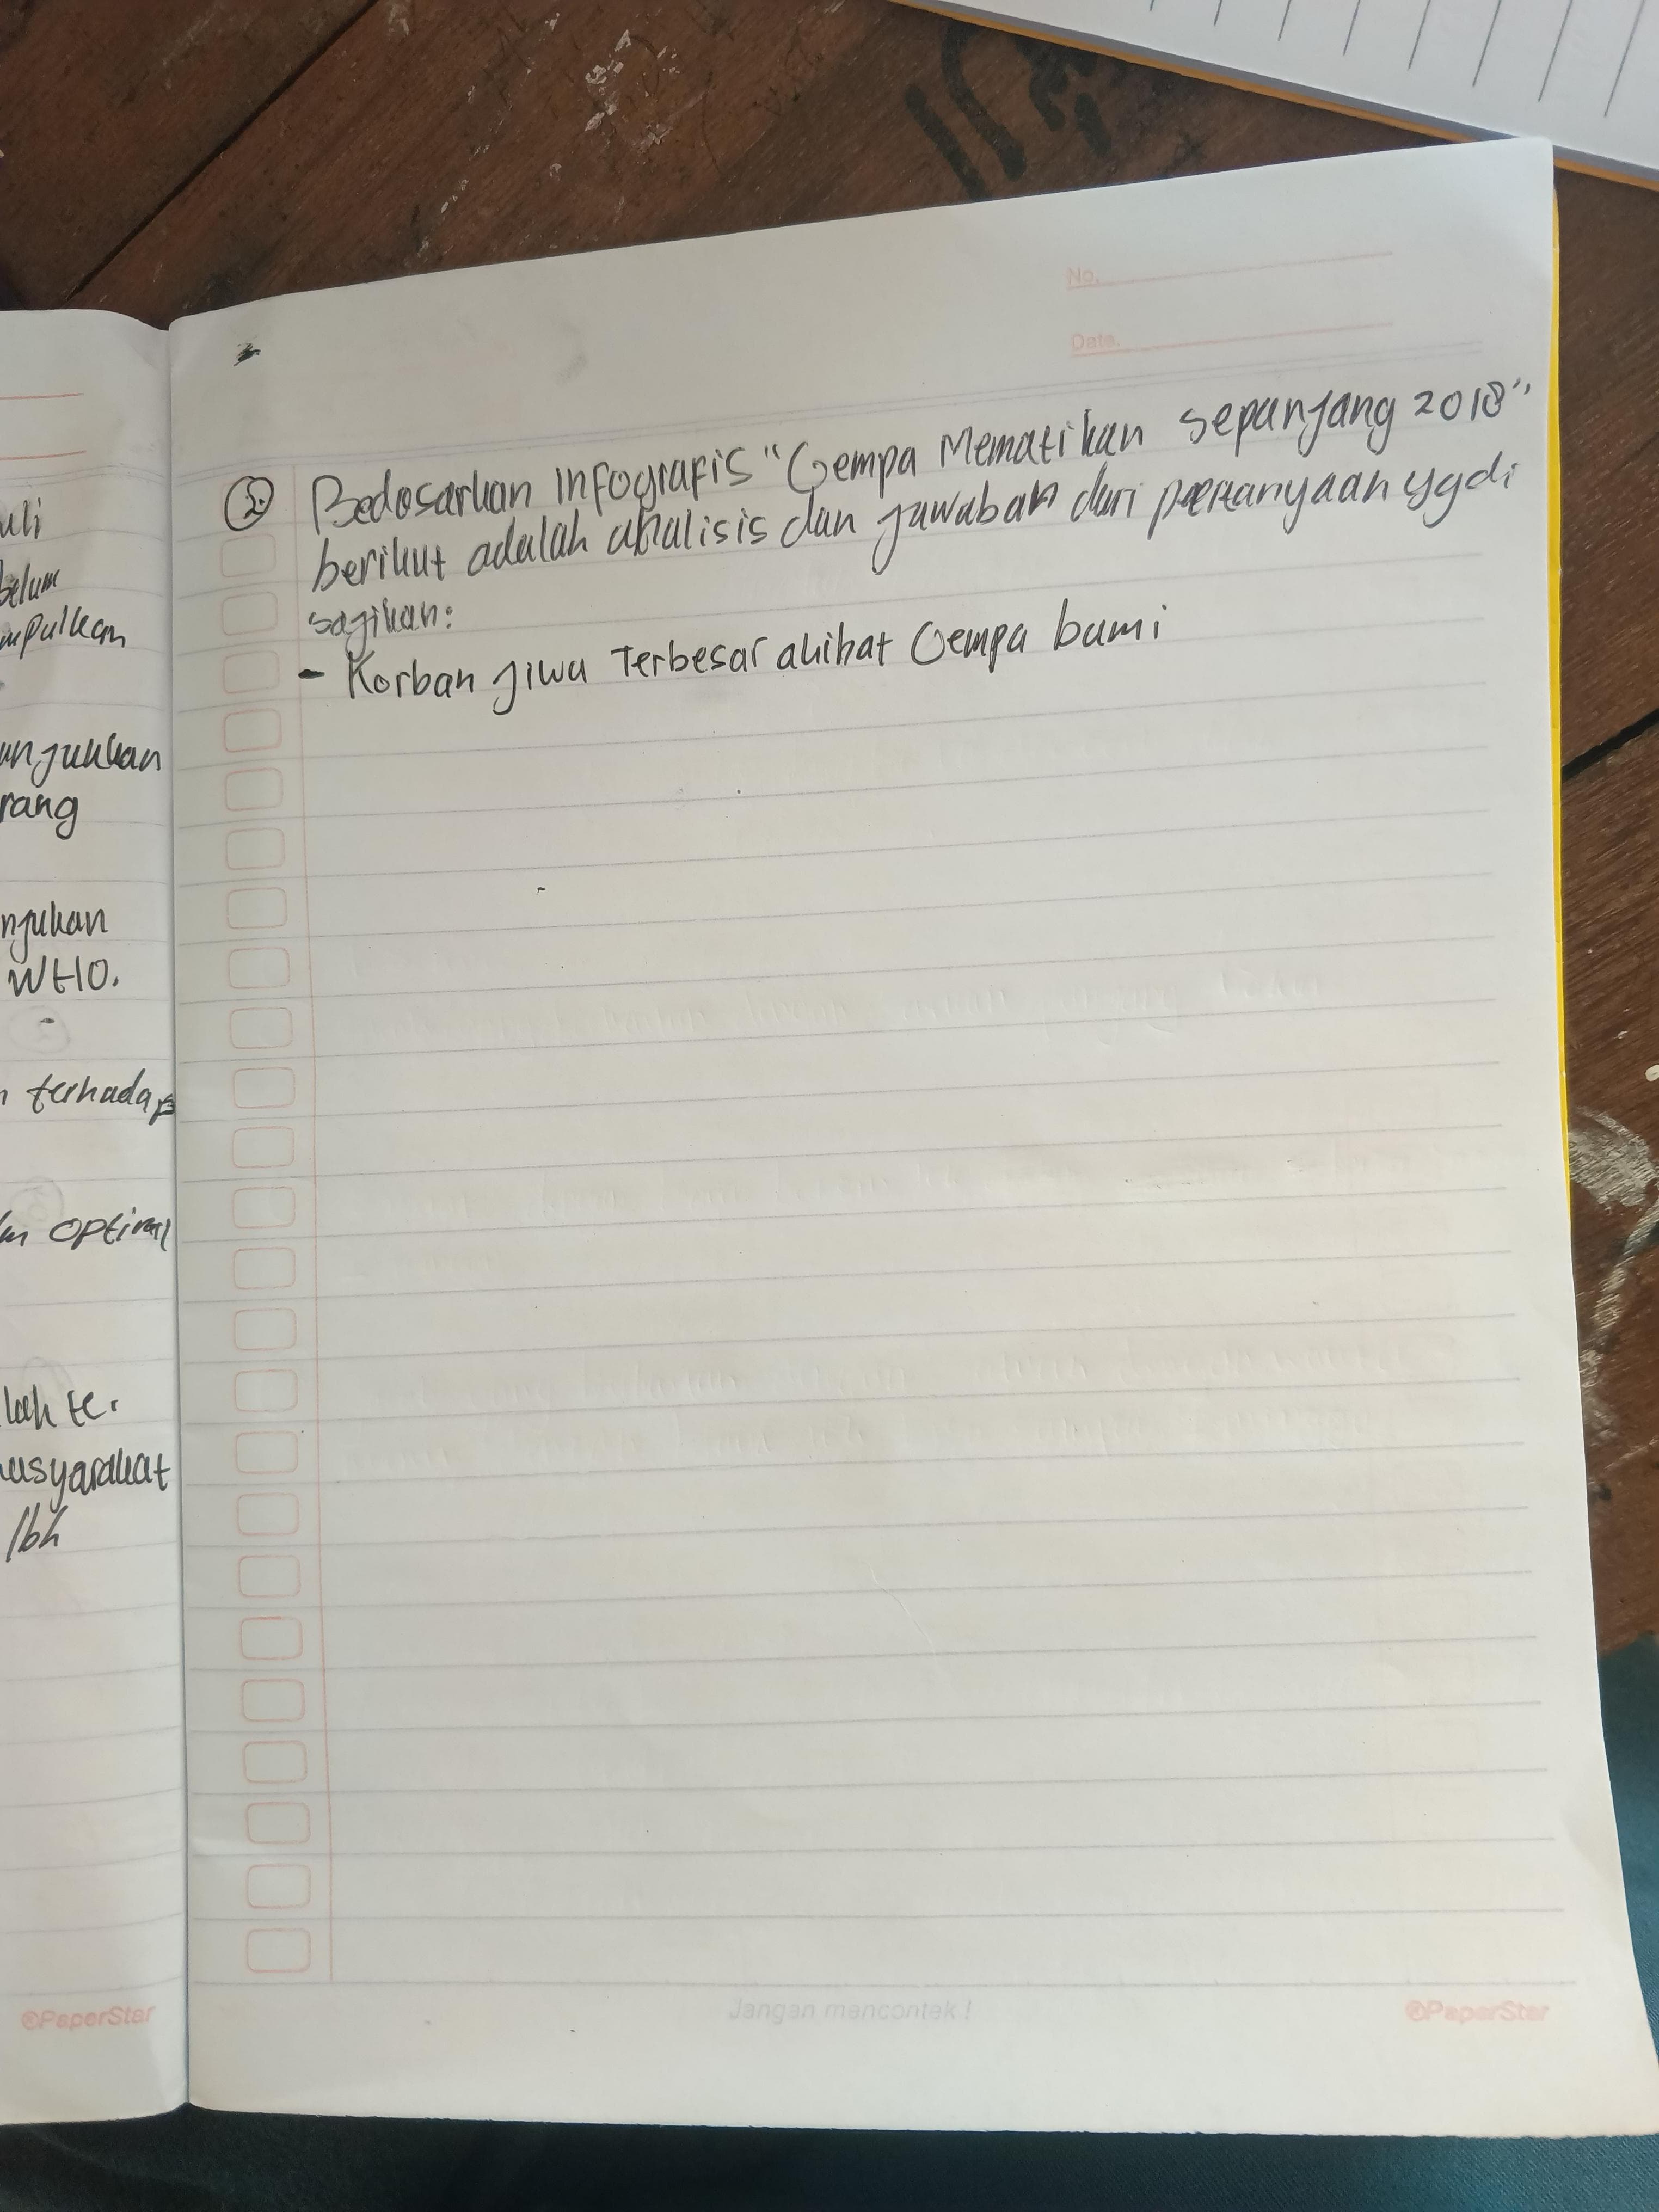 uli
belum
mpulkan
unjukkan
rang
njukan
WHO.
terhadap
optimal
lah te.
masyarakat
lbh
©PaperStar
No.
Date.
2. Bedasarkan infografis "Gempa Mematikan sepanjang 2018"
berikut adalah analisis dan jawaban dari pertanyaan yg di
sajikan:
- Korban jiwa Terbesar akibat Gempa bumi
Jangan mencontek!
©PaperStar